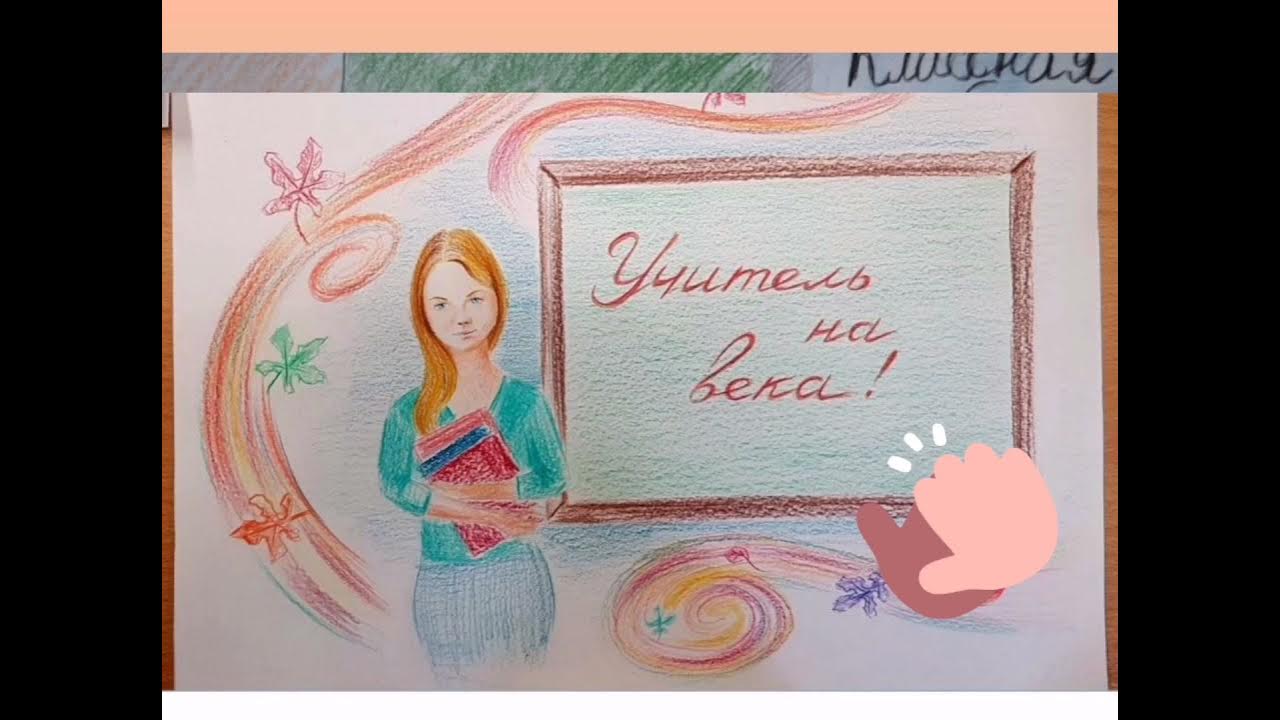 Классная
Учитель
на
века!